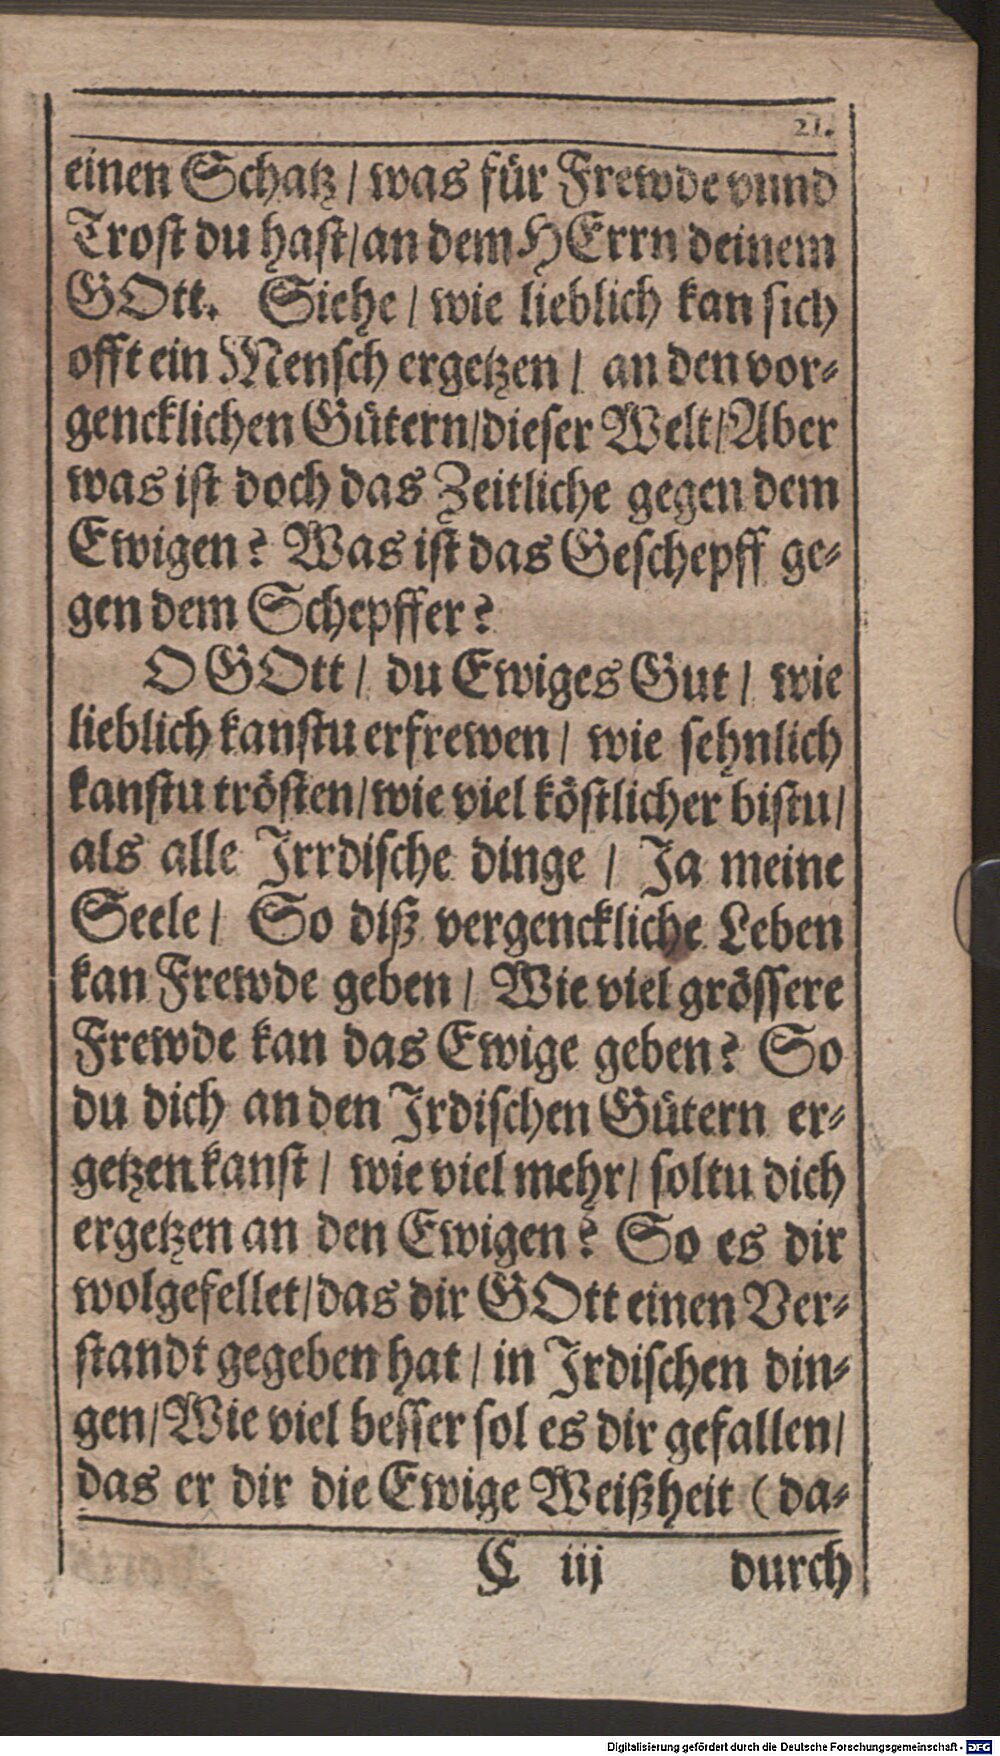 21.
einen Schatz / was für Frewde vnnd
Trost du hast / an dem HErrn deinem
GOtt. Siehe / wie lieblich kan sich
offt ein Mensch ergetzen / an den vor-
gencklichen Gütern / dieser Welt / Aber
was ist doch das Zeitliche gegen dem
Ewigen? Was ist das Geschepff ge-
gen dem Schepffer?
O GOtt / du Ewiges Gut / wie
lieblich kanstu erfrewen / wie sehnlich
kanstu trösten / wie viel köstlicher bistu /
als alle Irrdische dinge / Ja meine
Seele / So diß vergenckliche Leben
kan Frewde geben / Wie viel grössere
Frewde kan das Ewige geben? So
du dich an den Irdischen Gütern er-
getzen kanst / wie viel mehr / soltu dich
ergetzen an den Ewigen? So es dir
wolgefellet / das dir GOtt einen Ver-
standt gegeben hat / in Irdischen din-
gen / Wie viel besser sol es dir gefallen /
das er dir die Ewige Weißheit (da-
C iij durch
Digitalisierung gefördert durch die Deutsche Forschungsgemeinschaft - DFG